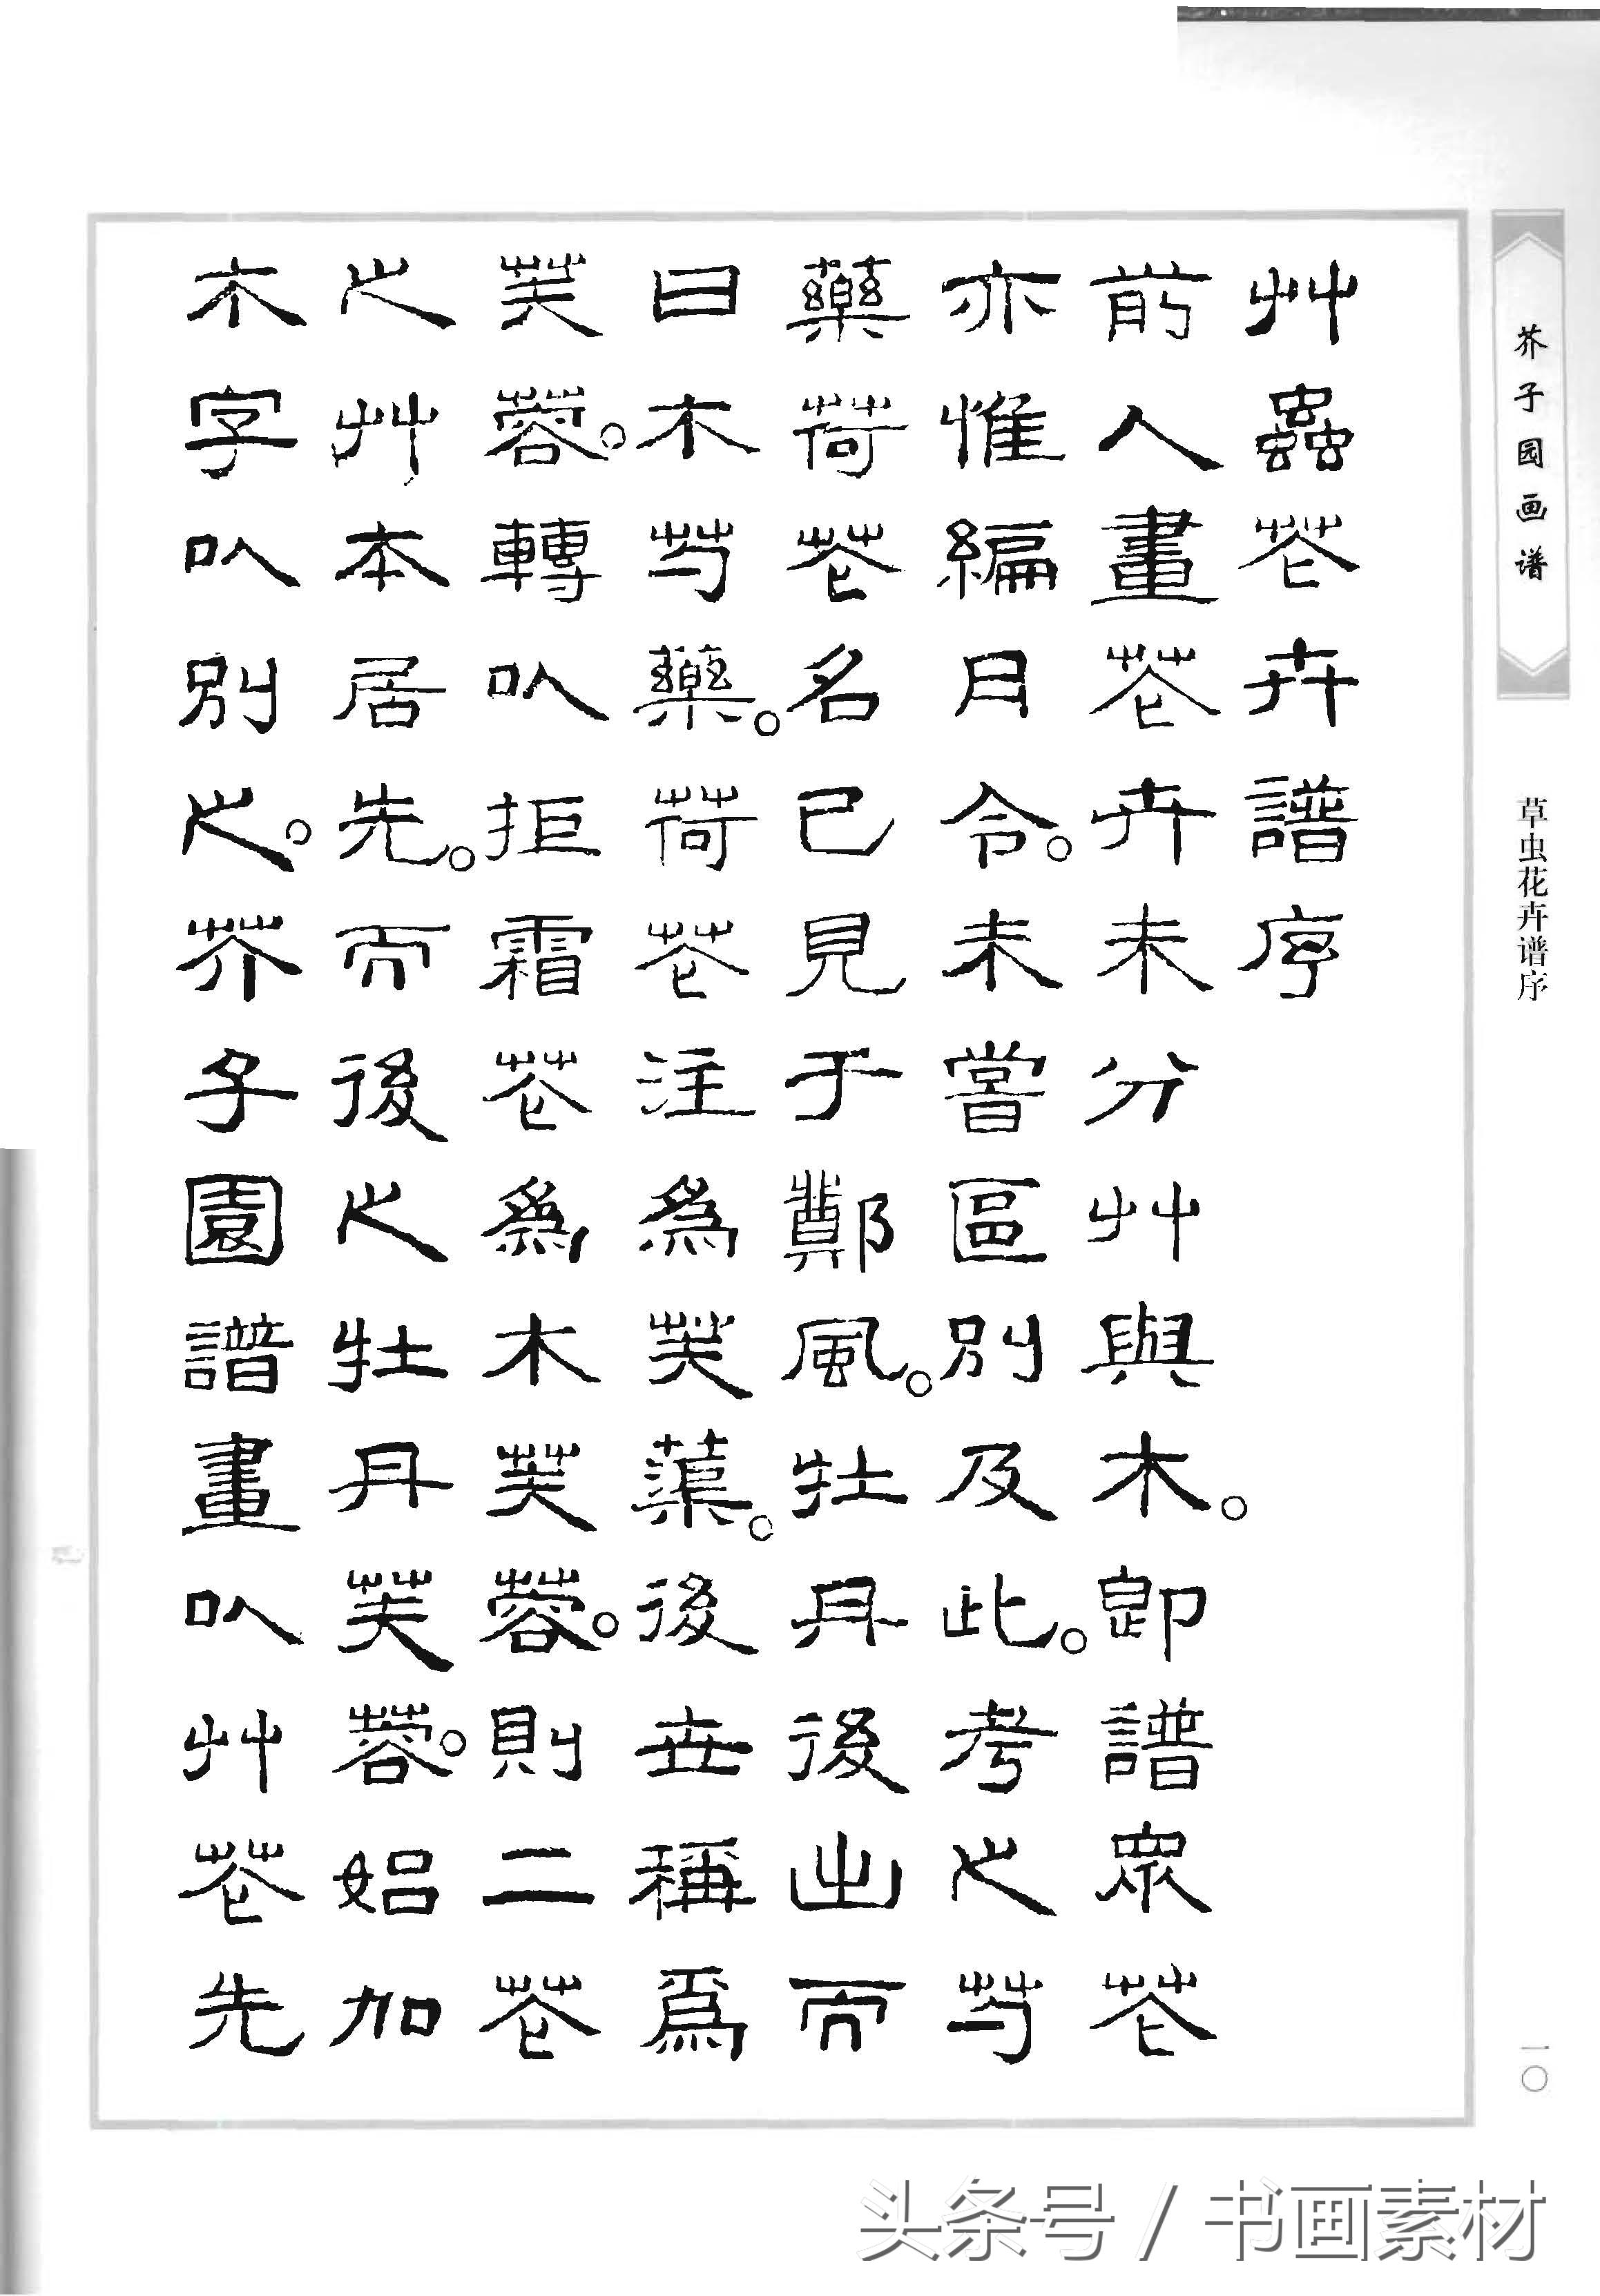 芥子园画谱
草虫花卉谱序
一〇
艸蟲花卉譜序
前人畫花卉未分艸與木。卽譜眾花
亦惟編月令。未嘗區別及此。考之芍
藥荷花名已見于鄭風。牡丹後出而
曰木芍藥。荷花注為芙蕖。後世稱爲
芙蓉。轉以拒霜花為木芙蓉。則二花
之艸本居先。而後之牡丹芙蓉。始加
木字以別之。芥子園譜畫以艸花先
头条号 / 书画素材